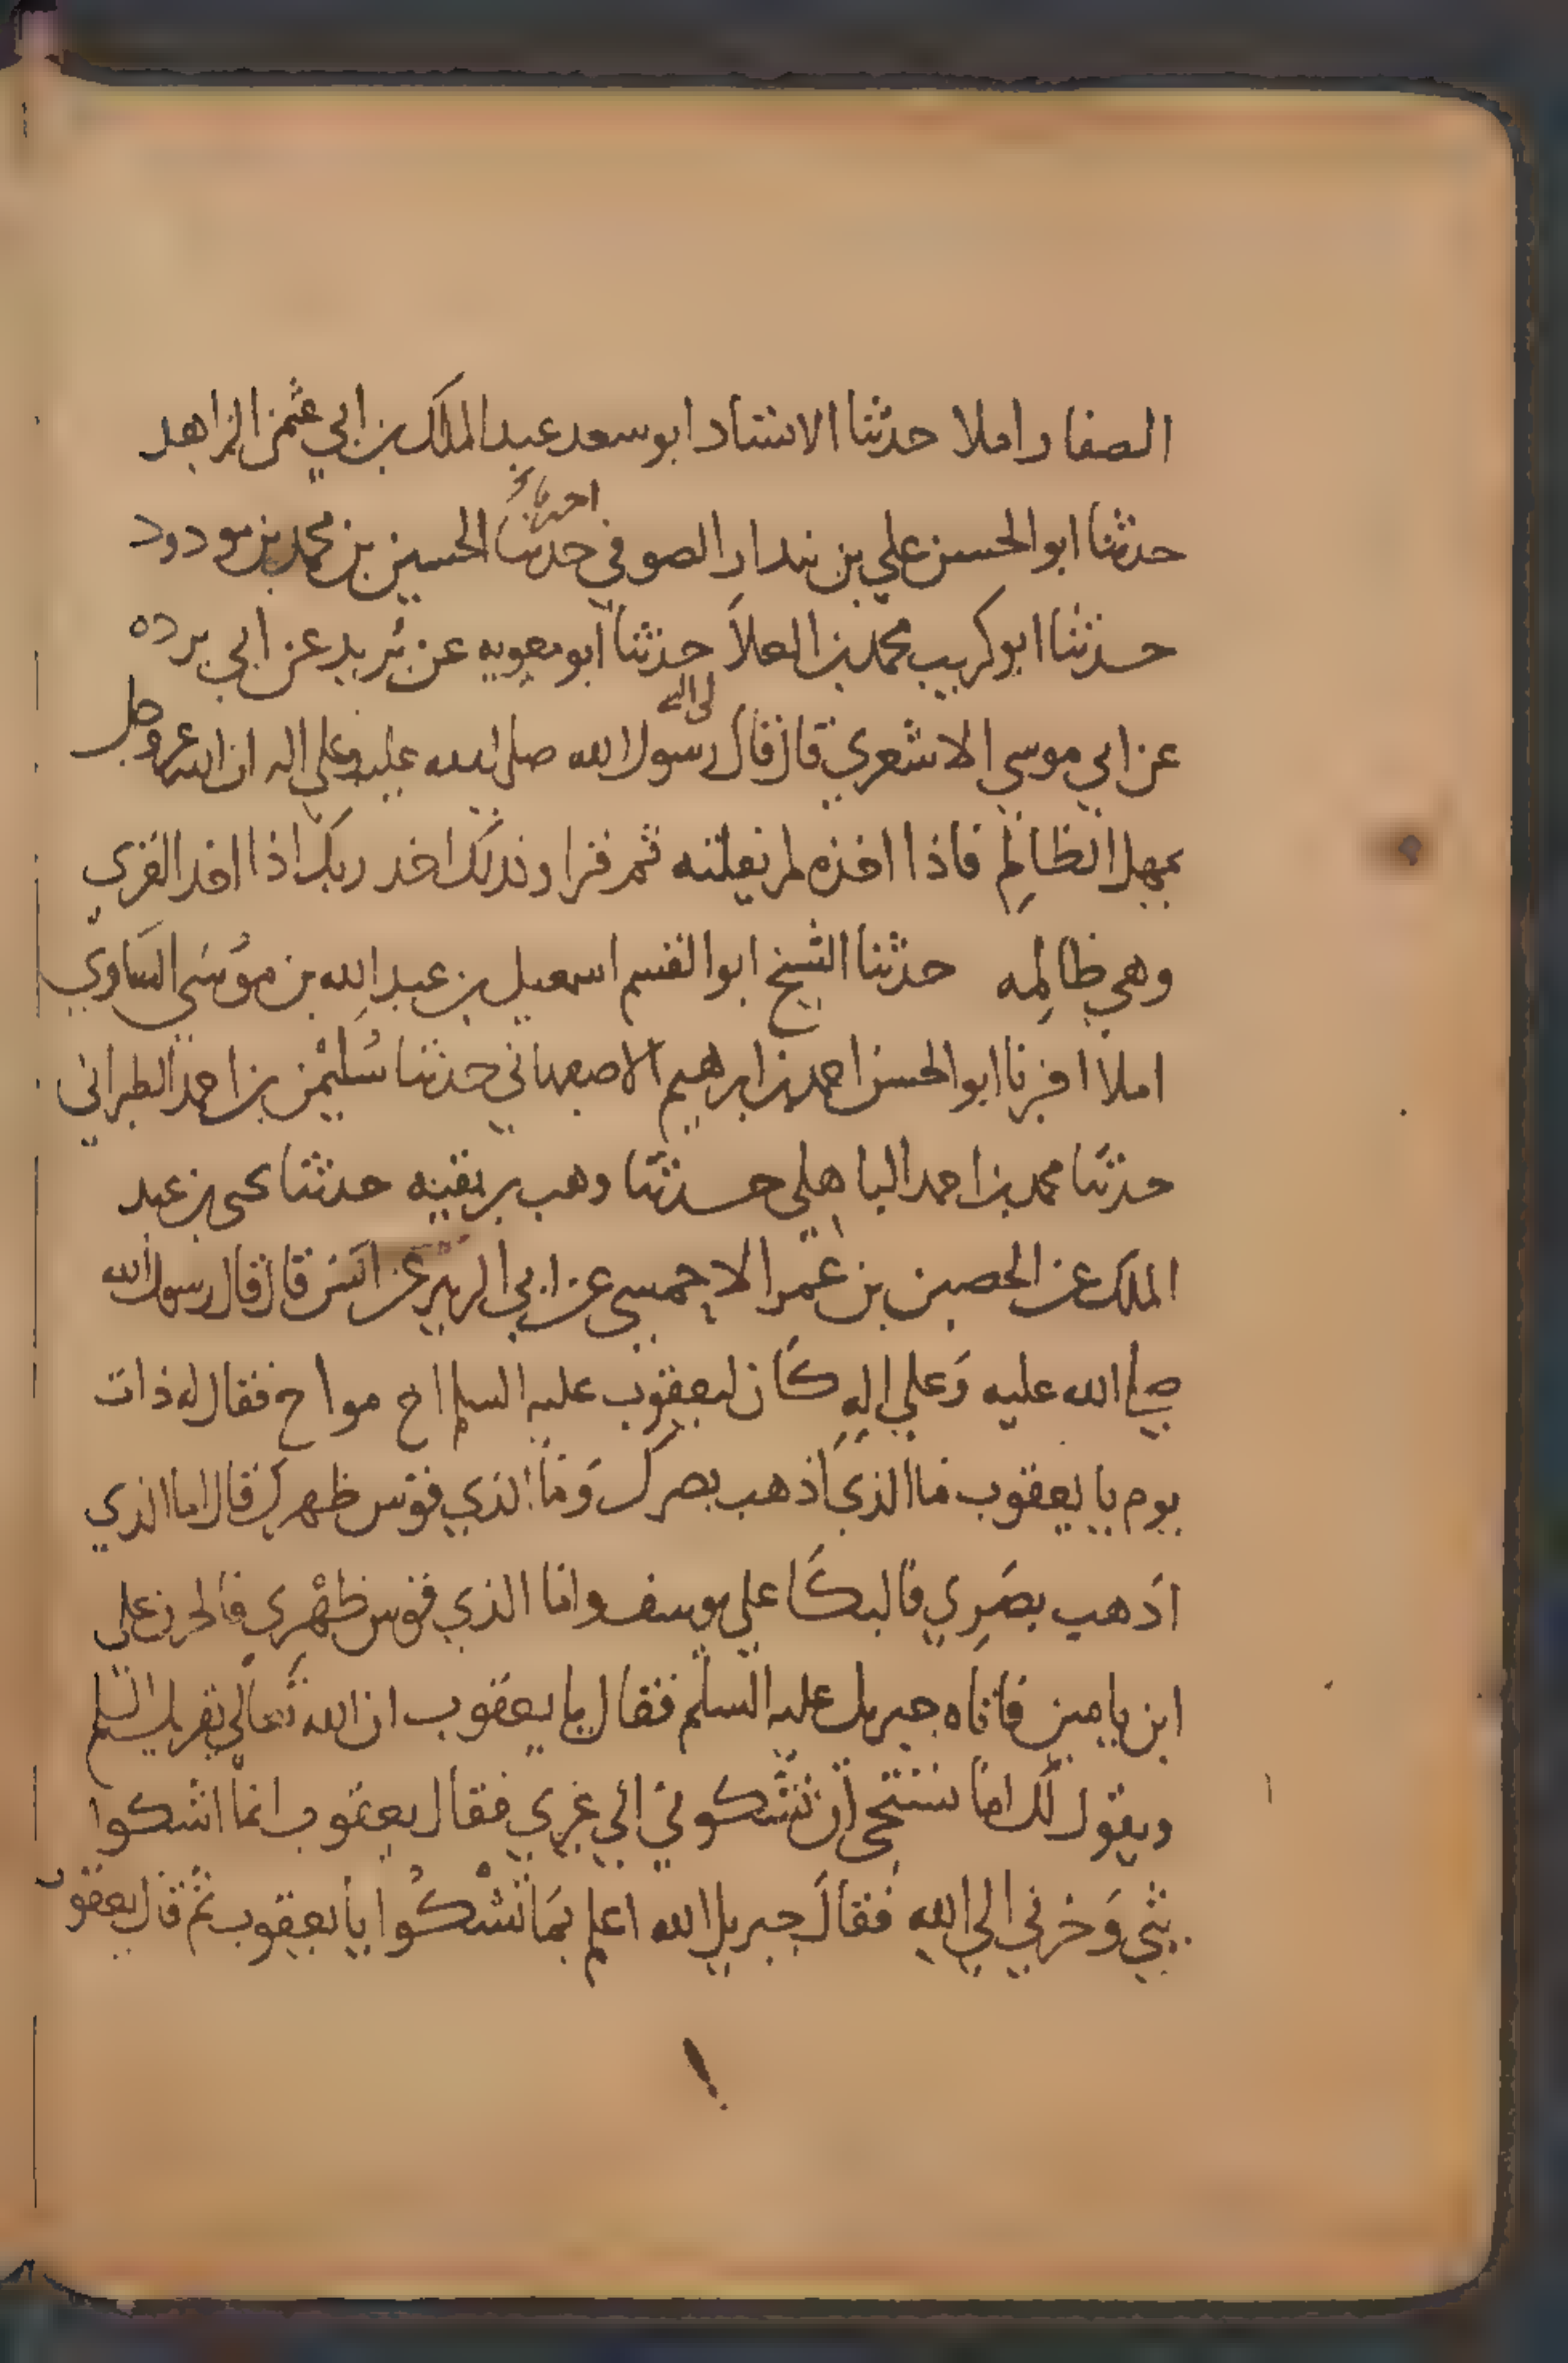 الصفار املا حدثنا الاستاد ابو سعد عبد الملك بن ابي عثمن الزاهد
حدثنا ابو الحسن علي بن بندار الصوفي حدثنا الحسين بن محمد بن مودود
حدثنا ابو كريب محمد بن العلا حدثنا ابو معويه عن بريد عن ابي برده
عن ابي موسي الاشعري قال قال رسول الله صلى الله عليه وعلي اله ان الله عز وجل
يمهل الظالم فاذا اخذه لم يفلته ثم قرا وكذلك اخذ ربك اذا اخذ القري
وهي ظالمه حدثنا الشيخ ابو القسم اسمعيل بن عبد الله بن موسي الساوي
املا اخبرنا ابو الحسن احمد بن ابرهيم الاصبهاني حدثنا سليمن بن احمد الطبراني
حدثنا محمد بن احمد الباهلي حدثنا وهب بن بقيه حدثنا يحيى بن عبد
الملك عن الحصين بن عمر الاحمسي عن ابي الزبير عن انس قال قال رسول الله
صلى الله عليه وعلي اله كان ليعقوب عليه السلم اخ مواخ فقال له ذات
يوم يا يعقوب ما الذي اذهب بصرك وما الذي قوس ظهرك قال اما الذي
اذهب بصري فالبكا علي يوسف واما الذي قوس ظهري فالحزن علي
ابن يامين فاتاه جبريل عليه السلم فقال يا يعقوب ان الله تعالي يقريك السلم
ويقول لك اما تستحي ان تشكوني الي غيري فقال يعقوب انما اشكوا
بثي وحزني الي الله فقال جبريل الله اعلم بما تشكوا يا يعقوب ثم قال يعقوب